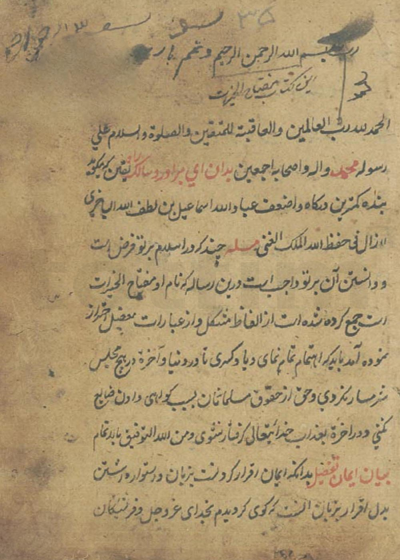 بسم الله الرحمن الرحيم وتمم بالخير
این کتاب مفتاح الخیرات
الحمد لله رب العالمین والعاقبة للمتقین والصلوة والسلام علی
رسوله محمد واله واصحابه اجمعین بدان ای برادر سالک یقین که میگوید
بنده کمترین درکاه واضعف عباد الله اسماعیل بن لطف الله الباخرزی
لازال فی حفظ الله الملک الغنی مسله چند که در اسلام بر تو فرض است
و دانستن آن بر تو واجب است درین رساله که نام او مفتاح الخیرات
است جمع کرده شده است از الفاظ مشکل و از عبارات معضل احتراز
نموده آمد باید که اهتمام تمام نمای و یاد کیری تا در دنیا و آخرة در هیچ مجلس
شرمسار نکردی و حق از حقوق مسلمانان بسبب کواهی دادن ضایع
نکنی و در آخرة بعذاب خدایتعالی کرفتار نشوی ومن الله التوفیق باید تمام
بیان ایمان تفصیل بدانکه ایمان اقرار کردنست بزبان و استوار داشتن
بدل اقرار بزبان آنست که کوی کرویدم بخدای عز وجل و فرشتکان